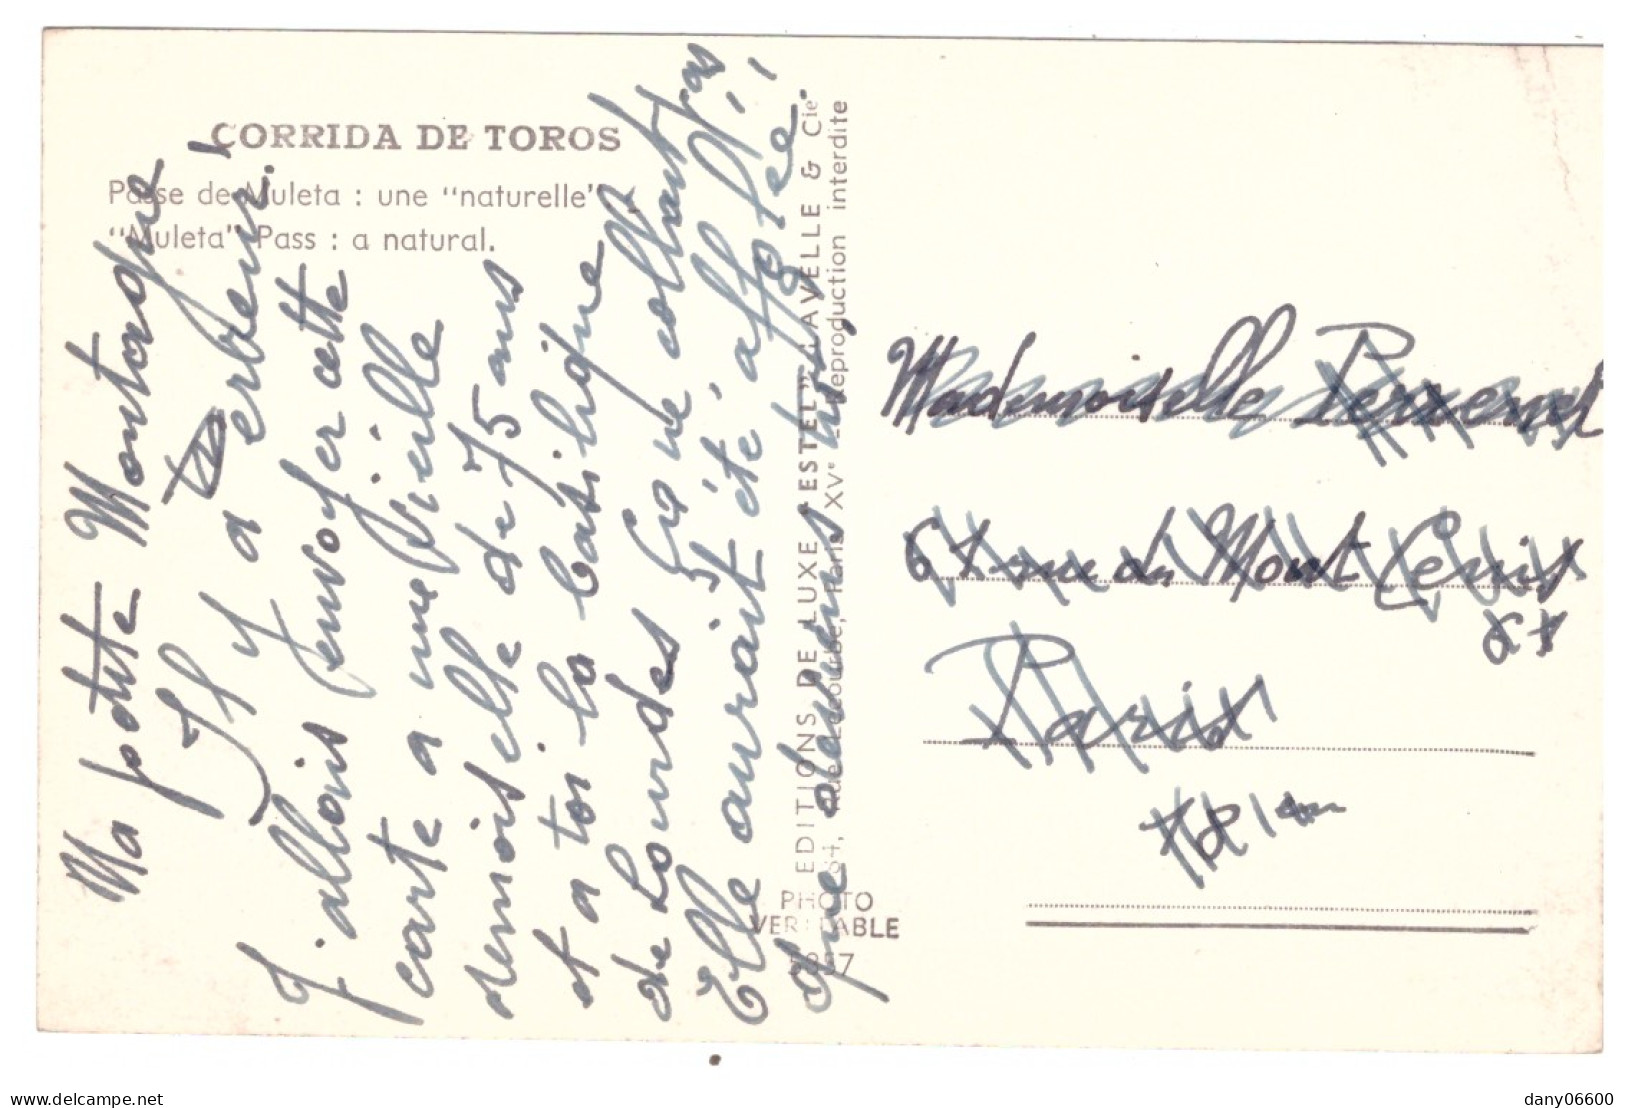 CORRIDA DE TOROS
Passe de Muleta : une "naturelle"
"Muleta" Pass : a natural.
Ma petite Montagne
Il y a erreur!
J'allais envoyer cette
carte a une vieille
demoiselle de 75 ans
et a toi la basilique
de Lourdes Ça ne collait pas
Elle aurait été affolée!
que devins tu
EDITIONS DE LUXE "ESTEL" LAVELLE & Cie
64, Rue Lecourbe, Paris XVe - Reproduction interdite
PHOTO
VERITABLE
5357
Mademoiselle
61 rue du Mont Cenis
61
Paris